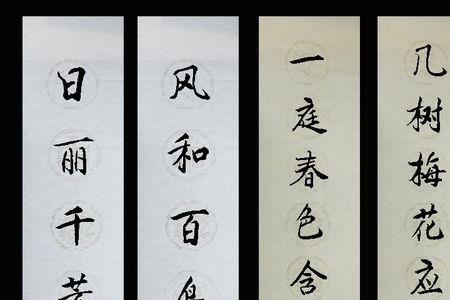 几树梅花应
一庭春色含
风和百
日丽千